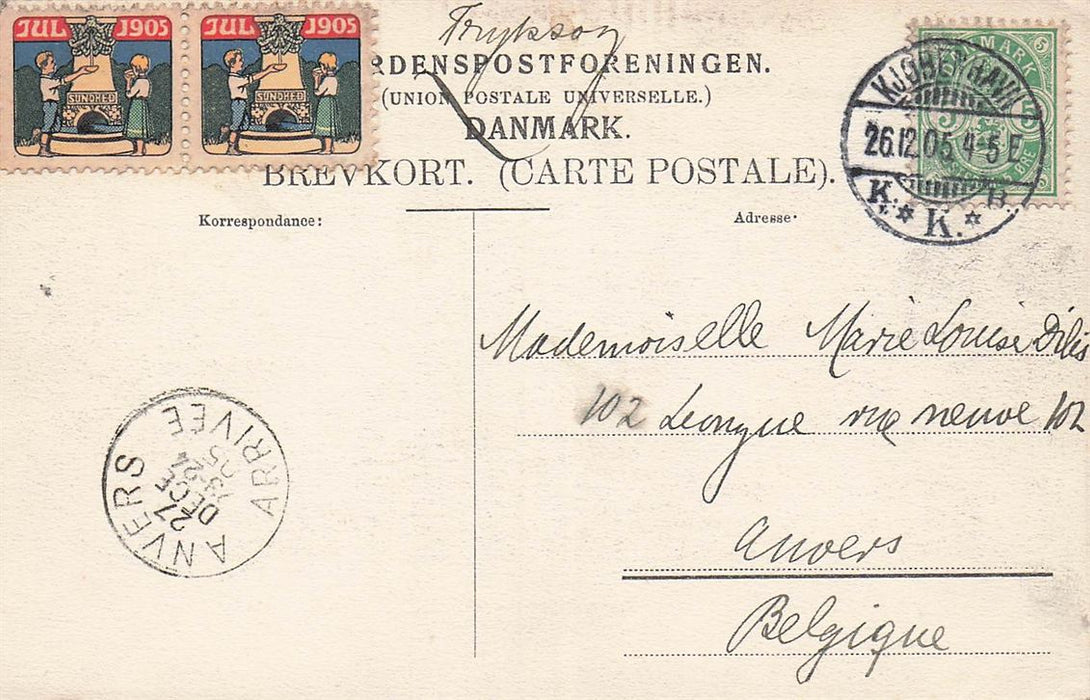 JUL 1905 JUL 1905
SUNDHED SUNDHED
Tryksag
RDENSPOSTFORENINGEN.
(UNION POSTALE UNIVERSELLE.)
DANMARK.
BREVKORT. (CARTE POSTALE).
Korrespondance:
Adresse:
DANMARK
5 5
ØRE
KJØBENHAVN
26.12.05. 4-5 E
K. * K. * B.
Mademoiselle Marie Louise Dilis
102 Longue rue neuve 102
Anvers
Belgique
ANVERS
27
DECE
23-24
05
ARRIVEE